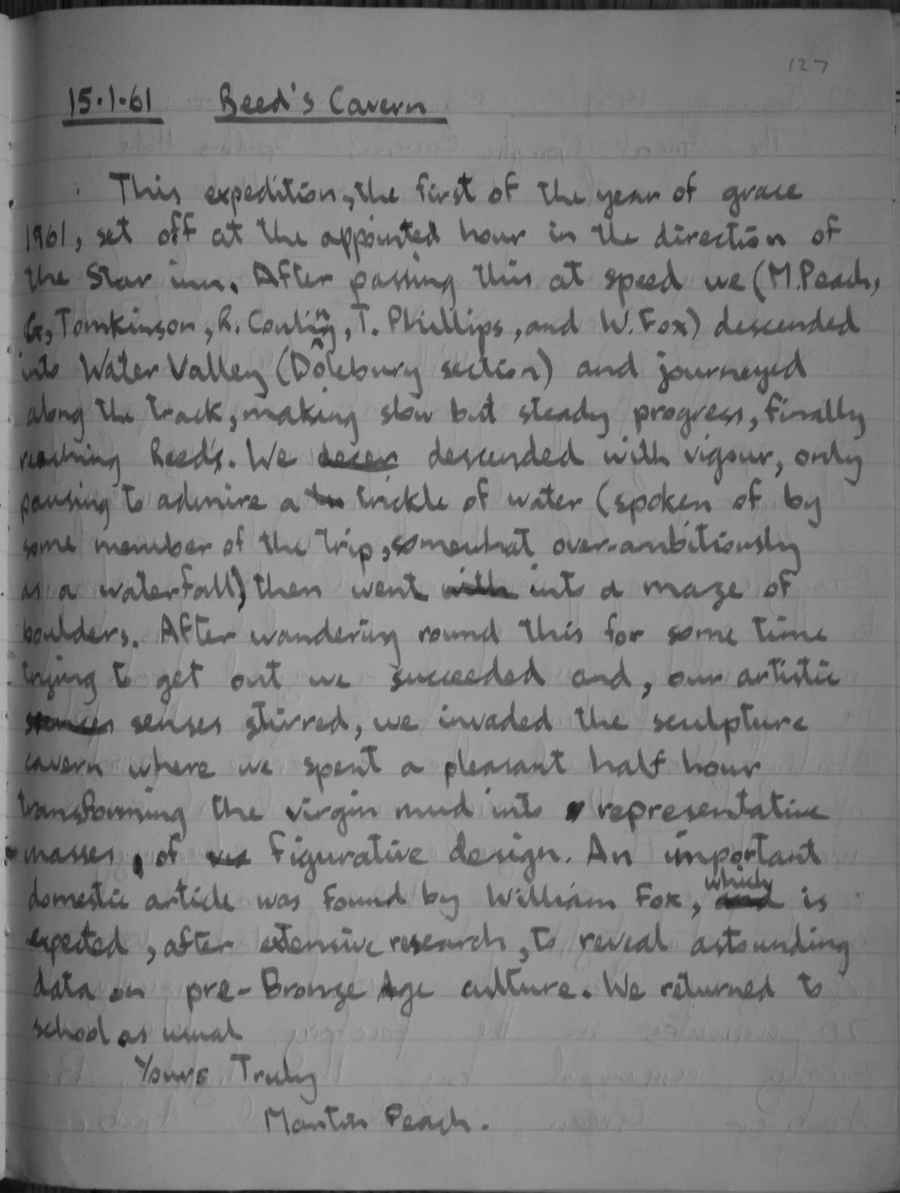 127
15·1·61 Reed's Cavern
This expedition, the first of the year of grace
1961, set off at the appointed hour in the direction of
the Star inn. After passing this at speed we (M.Peach,
G, Tomkinson, R. Conling, T. Phillips, and W. Fox) descended
into Water Valley (Dolebury section) and journeyed
along the track, making slow but steady progress, finally
reaching Reed's. We descended with vigour, only
pausing to admire a trickle of water (spoken of by
some member of the trip, somewhat over-ambitiously
as a waterfall) then went into a maze of
boulders. After wandering round this for some time
trying to get out we succeeded and, our artistic
senses stirred, we invaded the sculpture
cavern where we spent a pleasant half hour
transforming the virgin mud into representative
masses, of figurative design. An important
domestic article was found by William Fox, which is
expected, after extensive research, to reveal astounding
data on pre-Bronze Age culture. We returned to
school as usual
Yours Truly
Martin Peach.